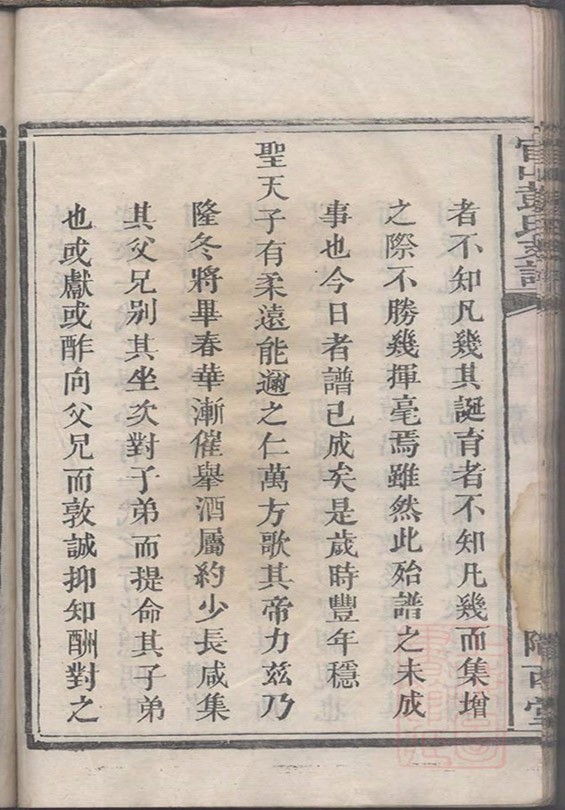 者不知凡幾其誕育者不知凡幾而集增
之際不勝幾揮毫焉雖然此殆譜之未成
事也今日者譜已成矣是歲時豐年穩
聖天子有柔遠能邇之仁萬方歌其帝力茲乃
隆冬將畢春華漸催舉酒屬約少長咸集
其父兄別其坐次對子弟而提命其子弟
也或獻或酢向父兄而敦誠抑知酬對之